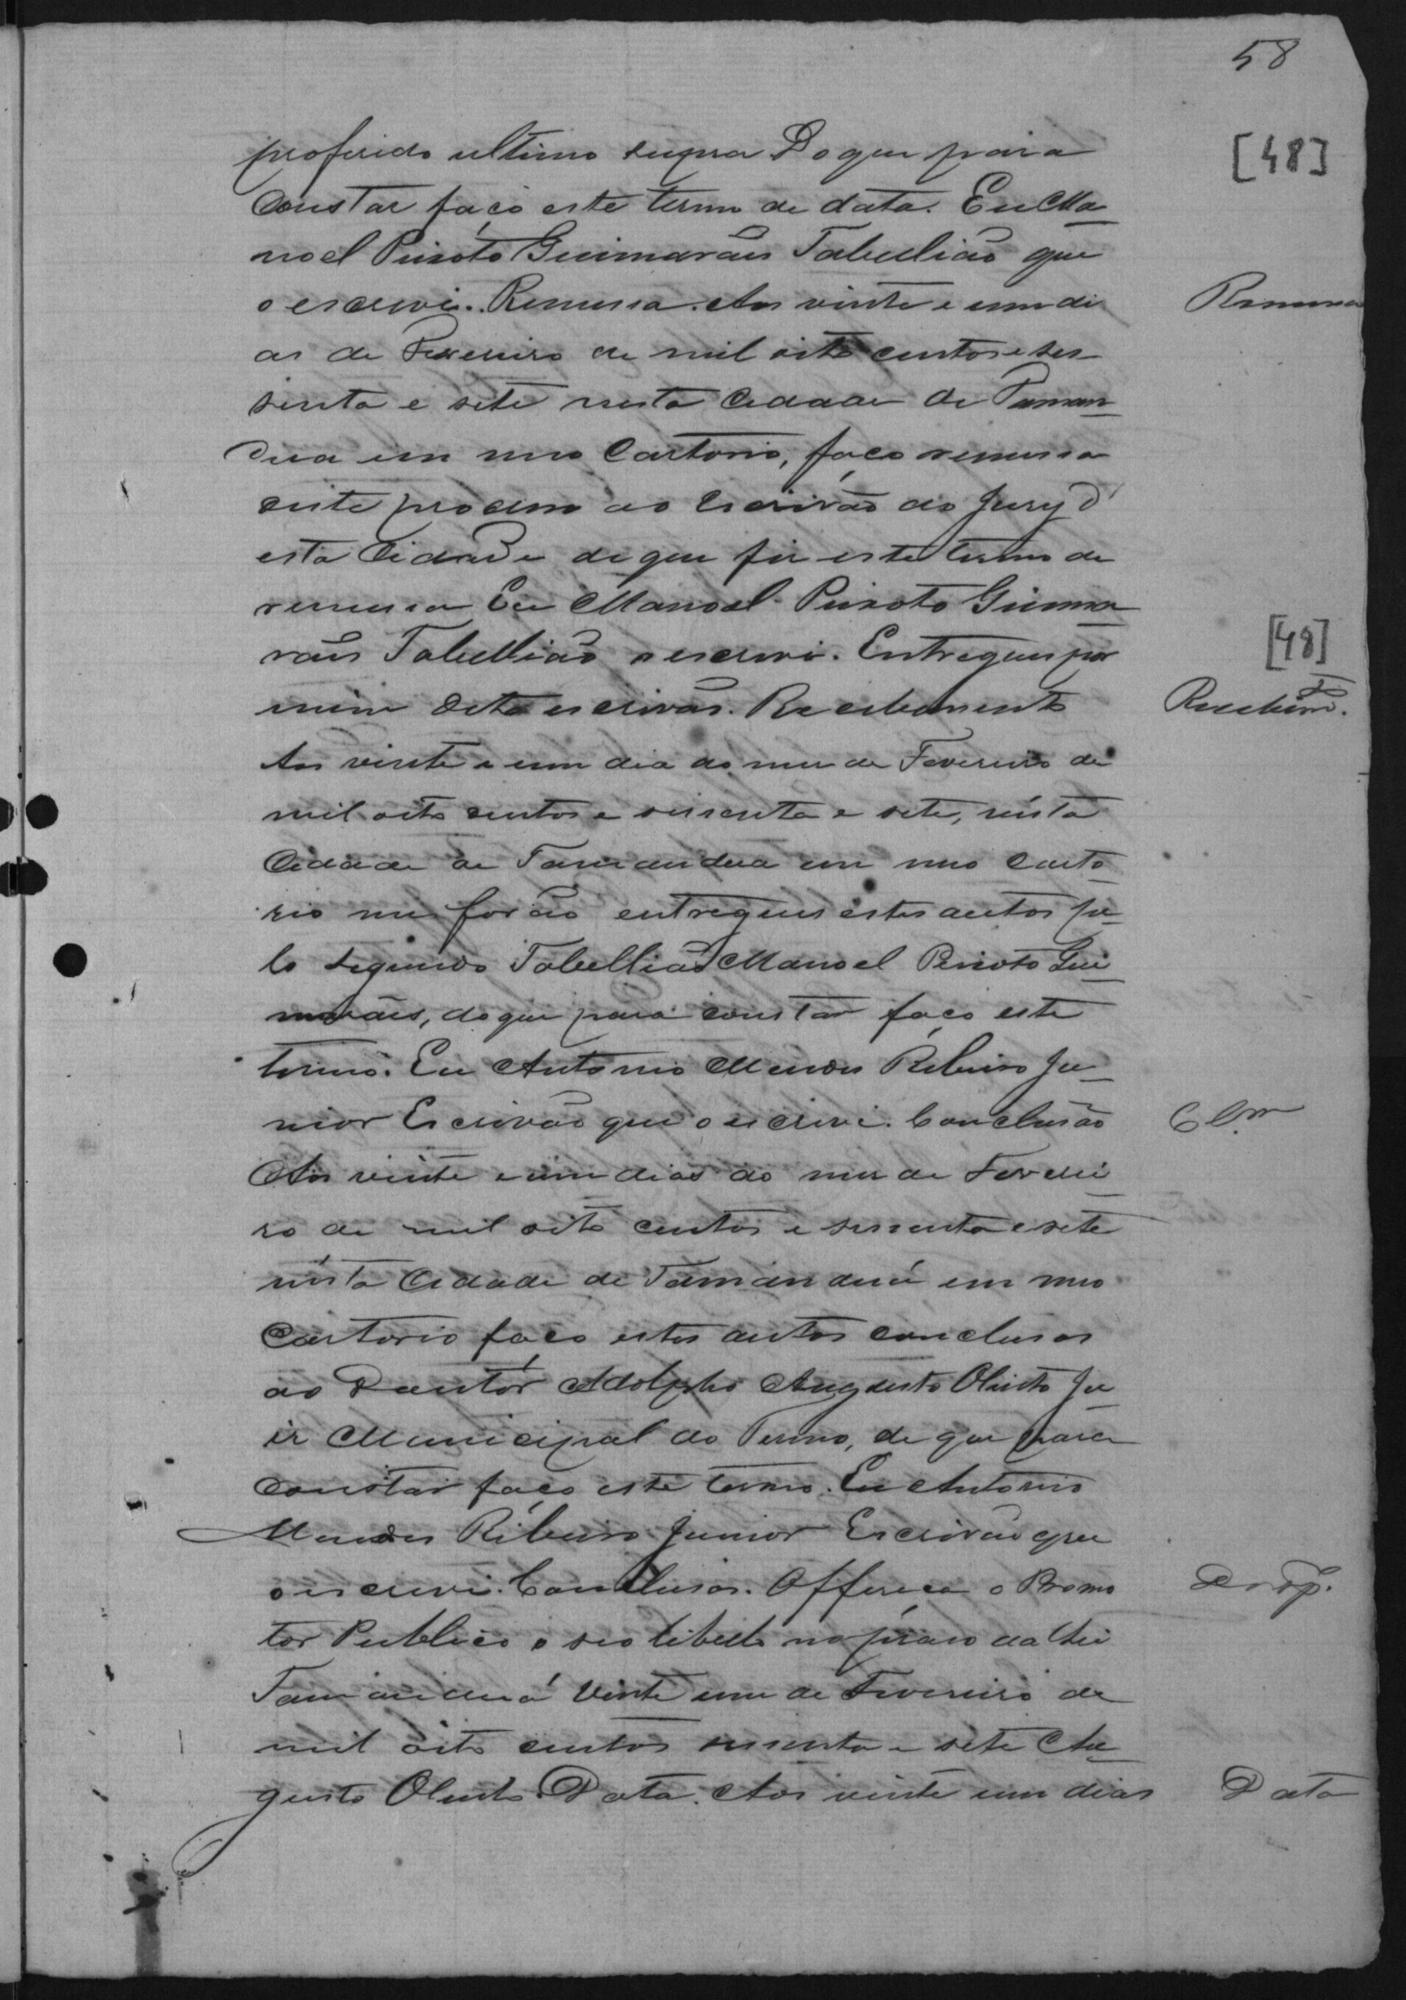 58
[48]
proferido ultimo supra Do que para
constar faço este termo de data. Eu Ma-
noel Peixoto Guimarães Tabelião que
o escrevi. Remessa. Aos vinte e um di
as de Fevereiro de mil oito centos e ses-
senta e sete nesta Cidade de Taman-
dua em meo Cartorio, faço remessa
Remessa
deste processo ao Escrivão do Jury d'
esta Cidade de que fiz este termo de
remessa Eu Manoel Peixoto Guima-
rães Tabellião o escrevi. Entregues por
mim dito escrivão. Recebimento
[48]
Recebimto.
Aos vinte e um dia do mez de Fevereiro de
mil oito centos e sessenta e sete, nésta
Cidade de Tamandua em meo Carto-
rio me forão entregues estes autos pe-
lo segundo Tabellião Manoel Peixoto Gui-
marães, do que para constar faço este
termo. Eu Antonio Mendes Ribeiro Ju-
nior Escrivão que o escrevi. Conclusão
Clm
Aos vinte e um dias do mez de Feverei-
ro de mil oito centos e sessenta e sete
nésta Cidade de Tamanduá em meo
Cartorio faço estes autos conclusos
ao Doutor Adolpho Augusto Olinto Ju-
iz Municipal do Termo, de que para
constar faço este termo. Eu Antonio
Mendes Ribeiro Junior Escrivão que
o escrevi. Conclusos. Offereça o Promo
Desp.
tor Publico o seo libello no prazo da lei
Tamanduá vinte um de Fevereiro de
mil oito centos sessenta e sete Au-
gusto Olinto. Data. Aos vinte um dias
Data